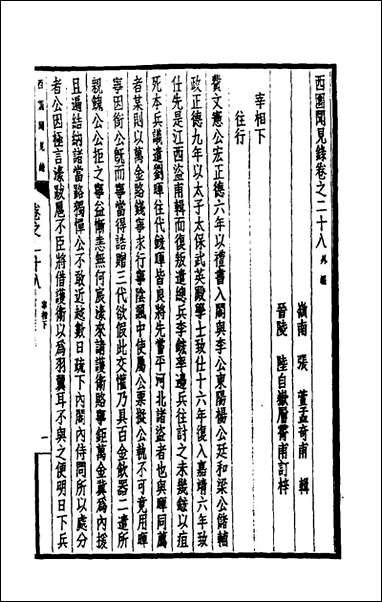 西園聞見錄卷之二十八 外編
嶺南 張 萱孟奇甫 輯
晉陵 陸自嶽層霄甫訂梓
宰相下
往行
費文憲公宏正德六年以禮書入閣與李公東陽楊公廷和梁公儲輔
政正德九年以太子太保武英殿學士致仕十六年復入嘉靖六年致
仕先是江西盜甫輯而復叛遣總兵李鋐率邊兵往討之未幾鋐以疽
死本兵議遣劉暉往代錢暉皆良將先嘗平河北諸盜者也與暉同薦
者某則以萬金賂錢寧求行寧陰諷中使屬公票擬公執不可竟用暉
寧因銜公既而寧當得誥贈三代欲假此交懽乃具百金飲器二遣所
親餽公公拒之寧益慚恚無何宸濠來請護衛賂寧鉅萬金冀爲內援
且遍結納諸當路獨憚公不敢近越數日疏下內閣內侍問所以處分
者公因極言濠跋扈不臣將借護衛以爲羽翼耳不與之便明日下兵
西園聞見錄 卷之二十八 宰相下 一